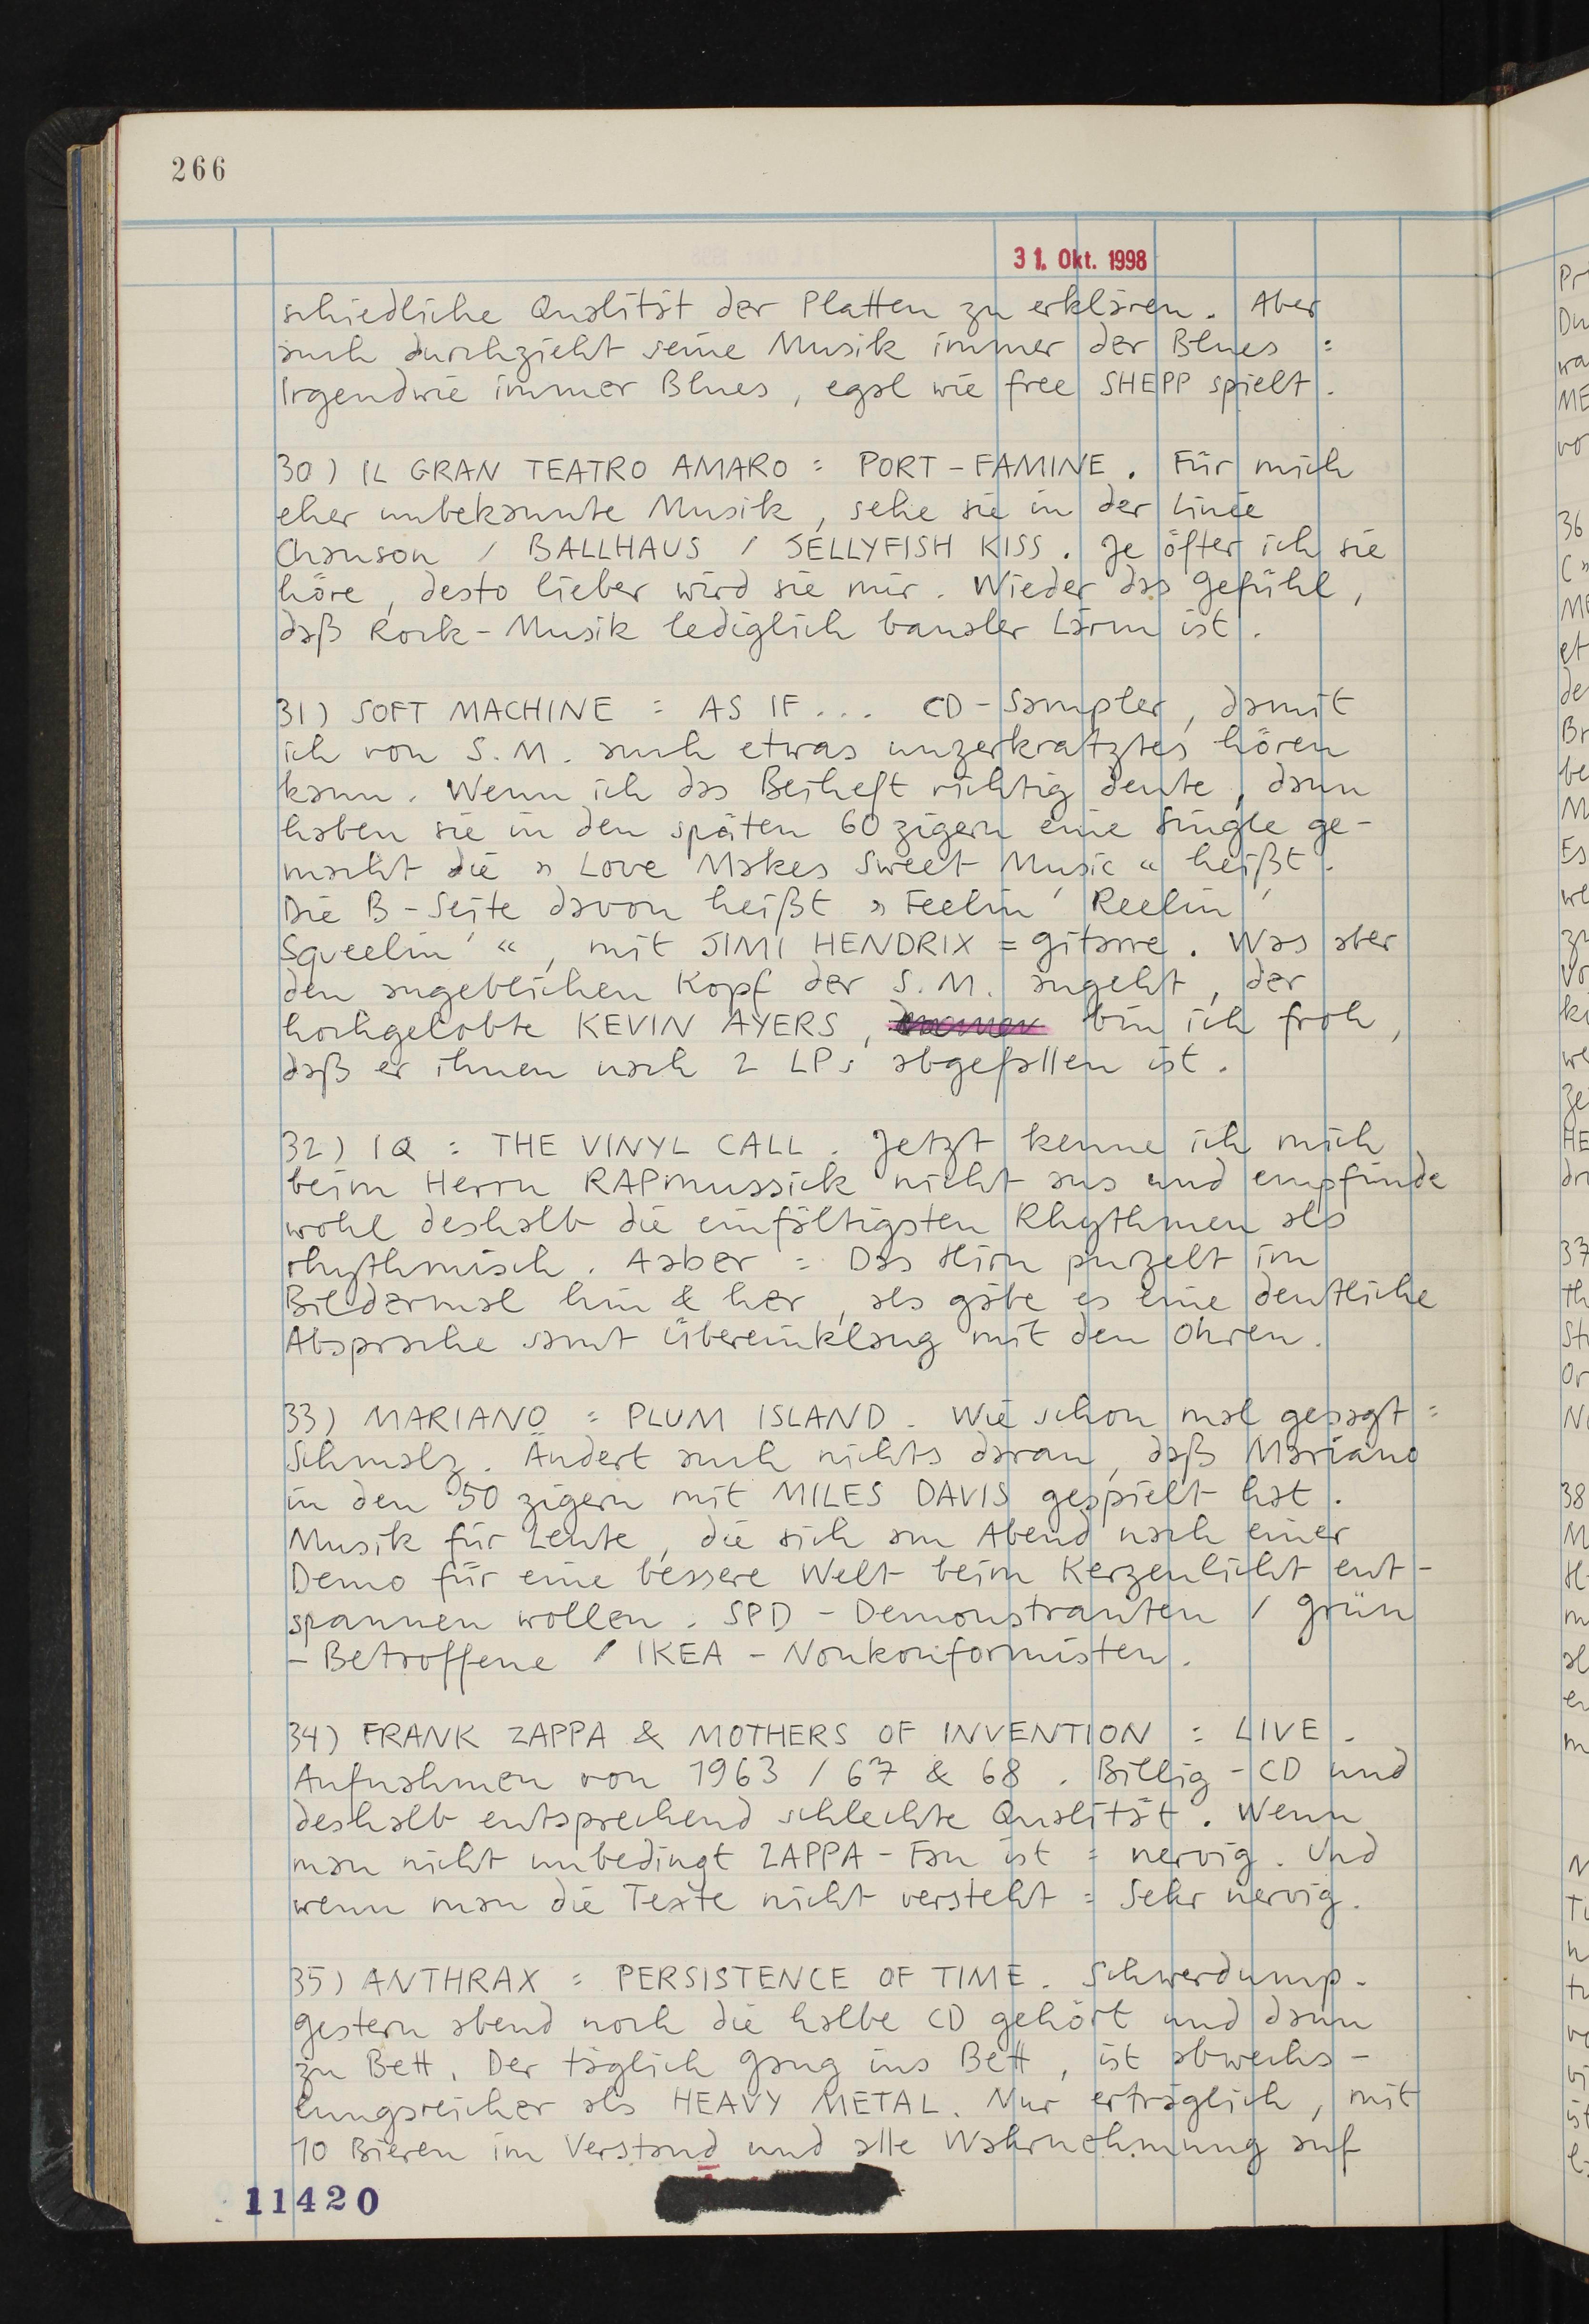 266
31. Okt. 1998
schiedliche Qualität der Platten zu erklären. Aber
auch durchzieht seine Musik immer der Blues :
Irgendwie immer Blues, egal wie free SHEPP spielt.
30) IL GRAN TEATRO AMARO : PORT-FAMINE. Für mich
eher unbekannte Musik, sehe sie in der Linie
Chanson / BALLHAUS / JELLYFISH KISS. Je öfter ich sie
höre, desto lieber wird sie mir. Wieder das Gefühl,
daß Rock-Musik lediglich banaler Lärm ist.
31) SOFT MACHINE : AS IF... CD-Sampler, damit
ich von S.M. auch etwas unzerkratztes hören
kann. Wenn ich das Beiheft richtig deute, dann
haben sie in den späten 60zigern eine Single ge-
macht die » Love Makes Sweet Music « heißt.
Die B-Seite davon heißt » Feelin' Reelin'
Squeelin' «, mit JIMI HENDRIX = Gitarre. Was aber
den angeblichen Kopf der S.M. angeht, der
hochgelobte KEVIN AYERS, bin ich froh,
daß er ihnen nach 2 LPs abgefallen ist.
32) IQ : THE VINYL CALL. Jetzt kenne ich mich
beim Herrn RAPmussick nicht aus und empfinde
wohl deshalb die einfältigsten Rhythmen als
rhythmisch. Aaber : Das Hirn purzelt im
Bildermal hin & her, als gäbe es eine deutliche
Absprache samt Übereinklang mit den Ohren.
33) MARIANO : PLUM ISLAND. Wie schon mal gesagt :
Schmalz. Ändert auch nichts daran, daß Mariano
in den 50zigern mit MILES DAVIS gespielt hat.
Musik für Leute, die sich am Abend nach einer
Demo für eine bessere Welt beim Kerzenlicht ent-
spannen wollen. SPD-Demonstranten / Grün
-Betroffene / IKEA-Nonkonformisten.
34) FRANK ZAPPA & MOTHERS OF INVENTION : LIVE.
Aufnahmen von 1963 / 67 & 68. Billig-CD und
deshalb entsprechend schlechte Qualität. Wenn
man nicht unbedingt ZAPPA-Fan ist = nervig. Und
wenn man die Texte nicht versteht = Sehr nervig.
35) ANTHRAX : PERSISTENCE OF TIME. Schwerdump.
Gestern abend noch die halbe CD gehört und dann
zu Bett. Der täglich Gang ins Bett, ist abwechs-
lungsreicher als HEAVY METAL. Nur erträglich, mit
10 Bieren im Verstand und alle Wahrnehmung auf
11420